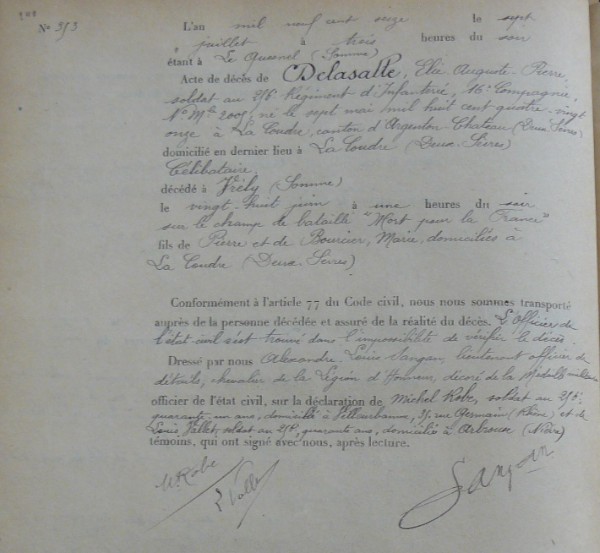 N° 313
L'an mil neuf cent onze le sept
juillet à trois heures du soir
étant à Le Quesnel (Somme)
Acte de décès de Delasalle, Elie Auguste-Pierre,
soldat au 216e Régiment d'Infanterie, 16e Compagnie,
N° Mle 2005, né le sept mai mil huit cent quatre-vingt
onze à La Coudre, canton d'Argenton-Chateau (Deux Sèvres)
domicilié en dernier lieu à La Coudre (Deux-Sèvres)
Célibataire
décédé à Vrély (Somme)
le vingt-huit juin à une heures du soir
sur le champ de bataille "Mort pour la France"
fils de Pierre et de Bourcier, Marie, domiciliés à
La Coudre (Deux-Sèvres)
Conformément à l'article 77 du Code civil, nous nous sommes transporté
auprès de la personne décédée et assuré de la réalité du décès. L'Officier de
l'état civil s'est trouvé dans l'impossibilité de vérifier le décès
Dressé par nous Alexandre Louis Sangan, lieutenant officier de
détails, chevalier de la Légion d'Honneur, décoré de la Médaille
officier de l'état civil, sur la déclaration de Michel Robe, soldat au
quarante un ans, domicilié à Villeurbanne, rue Germain (Rhône) et de
Louis Vallet, soldat au quarante ans, domicilié à
témoins, qui ont signé avec nous, après lecture.
M Robe
L Vallet
Sangan